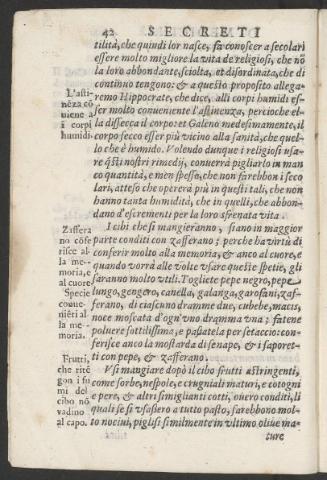 42 SECRETI
tilità, che quindi lor nasce, fa conoscer a secolari
essere molto migliore la vita de religiosi, che nõ
la loro abbondante, sciolta, et disordinata, che di
continuo tengono: & a questo proposito allega-
remo Hippocrate, che dice, alli corpi humidi es-
ser molto conueniente l'astinenza, percioche el-
la dissecca il corpo: et Galeno medesimamente, il
corpo secco esser più vicino alla sanità, che quel-
lo che è humido. Volendo dunque i religiosi usa-
re q̃sti nostri rimedij, conuerrà pigliarlo in man
co quantità, e mẽ spesso, che non farebbon i seco
lari, atteso che opererà più in questi tali, che non
hanno tanta humidità, che in quelli, che abbon-
dano d'escrementi per la loro sfrenata vita.
I cibi che si mangieranno, siano in maggior
parte conditi con zafferano; perche ha virtù di
conferir molto alla memoria, & anco al cuore, e
quando vorrà alle volte vsare queste spetie, gli
saranno molto vtili. Togliete pepe negro, pepe
lungo, gengero, canella, galanga, garofani, zaf-
ferano, di ciascuno dramme due, cubebe, macis,
noce moscata d'ogn'vno dramma vna; fatene
poluere sottilissima, e passatela per setaccio: con-
ferisce anco la mostarda di senape, & i saporet-
ti con pepe, & zafferano.
Vsi mangiare dopò il cibo frutti astringenti,
come sorbe, nespole, e crugniali maturi, e cotogni
e pere, & altri simiglianti cotti, ouero conditi, li
quali se si vsassero a tutto pasto, sarebbono mol-
to nociui, piglisi similmente in vltimo oliue ma-
ture
L'asti-
nẽza cõ
uiene a
i corpi
humidi.
Zaffera
no cõfe
risce al-
la me-
moria, e
al cuore
Specie
conue-
niẽti al
la me-
moria.
Frutti,
che ritẽ
gon i fu
mi del
cibo nõ
vadino
al capo.